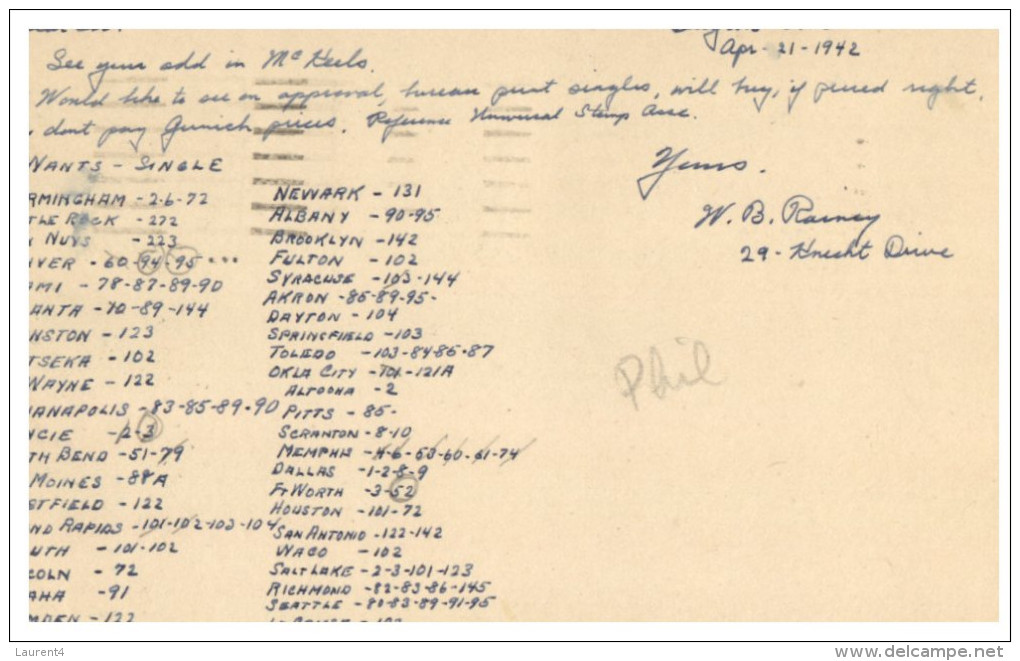 Apr-21-1942
See your add in McKeels.
Would like to see on approval, bureau print singles, will buy, if priced right.
dont pay Gimich prices. Reference Universal Stamp Assc.
WANTS - SINGLE
RMINGHAM - 2-6-72
TLE ROCK - 272
NUYS - 223
NVER - 60-94-95
AMI - 78-87-89-90
ANTA - 70-89-144
NSTON - 123
TSEKA - 102
WAYNE - 122
IANAPOLIS - 83-85-89-90
NCIE - 2-3
TH BEND - 51-79
MOINES - 88A
STFIELD - 122
ND RAPIDS - 101-102-103-104
UTH - 101-102
COLN - 72
AHA - 91
MDEN - 122
NEWARK - 131
ALBANY - 90-95
BROOKLYN - 142
FULTON - 102
SYRACUSE - 103-144
AKRON - 85-89-95-
DAYTON - 104
SPRINGFIELD - 103
TOLEDO - 103-84-85-87
OKLA CITY - 701-121A
ALTOONA - 2
PITTS - 85-
SCRANTON - 8-10
MEMPHIS - 4-6-53-60-61-74
DALLAS - 1-2-8-9
FT WORTH - 3-52
HOUSTON - 101-72
SAN ANTONIO - 122-142
WACO - 102
SALT LAKE - 2-3-101-123
RICHMOND - 82-83-86-145
SEATTLE - 80-83-89-91-95
Yours.
W. B. Rainey
29 - Knecht Drive
Phil
Laurent4
delcampe.net